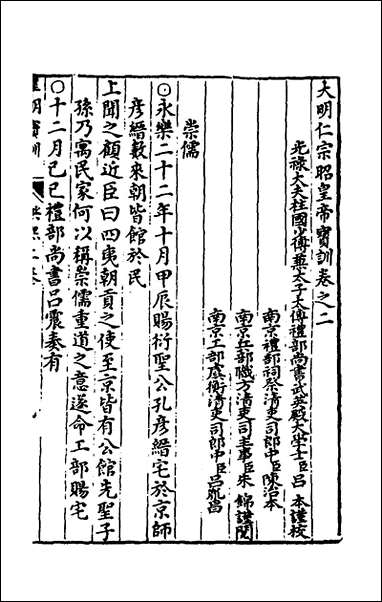 大明仁宗昭皇帝寶訓卷之二
光祿大夫柱國少傅兼太子太傅禮部尚書武英殿大學士臣呂 本謹校
南京禮部祠祭清吏司郎中臣陳治本
南京兵部職方清吏司主事臣朱 錦謹閱
南京工部虞衡清吏司郎中臣呂胤昌
崇儒
○永樂二十二年十月甲辰賜衍聖公孔彥縉宅於京師
彥縉數來朝皆館於民
上聞之顧近臣曰四夷朝貢之使至京皆有公館先聖子
孫乃寓民家何以稱崇儒重道之意遂命工部賜宅
○十二月己巳禮部尚書呂震奏有